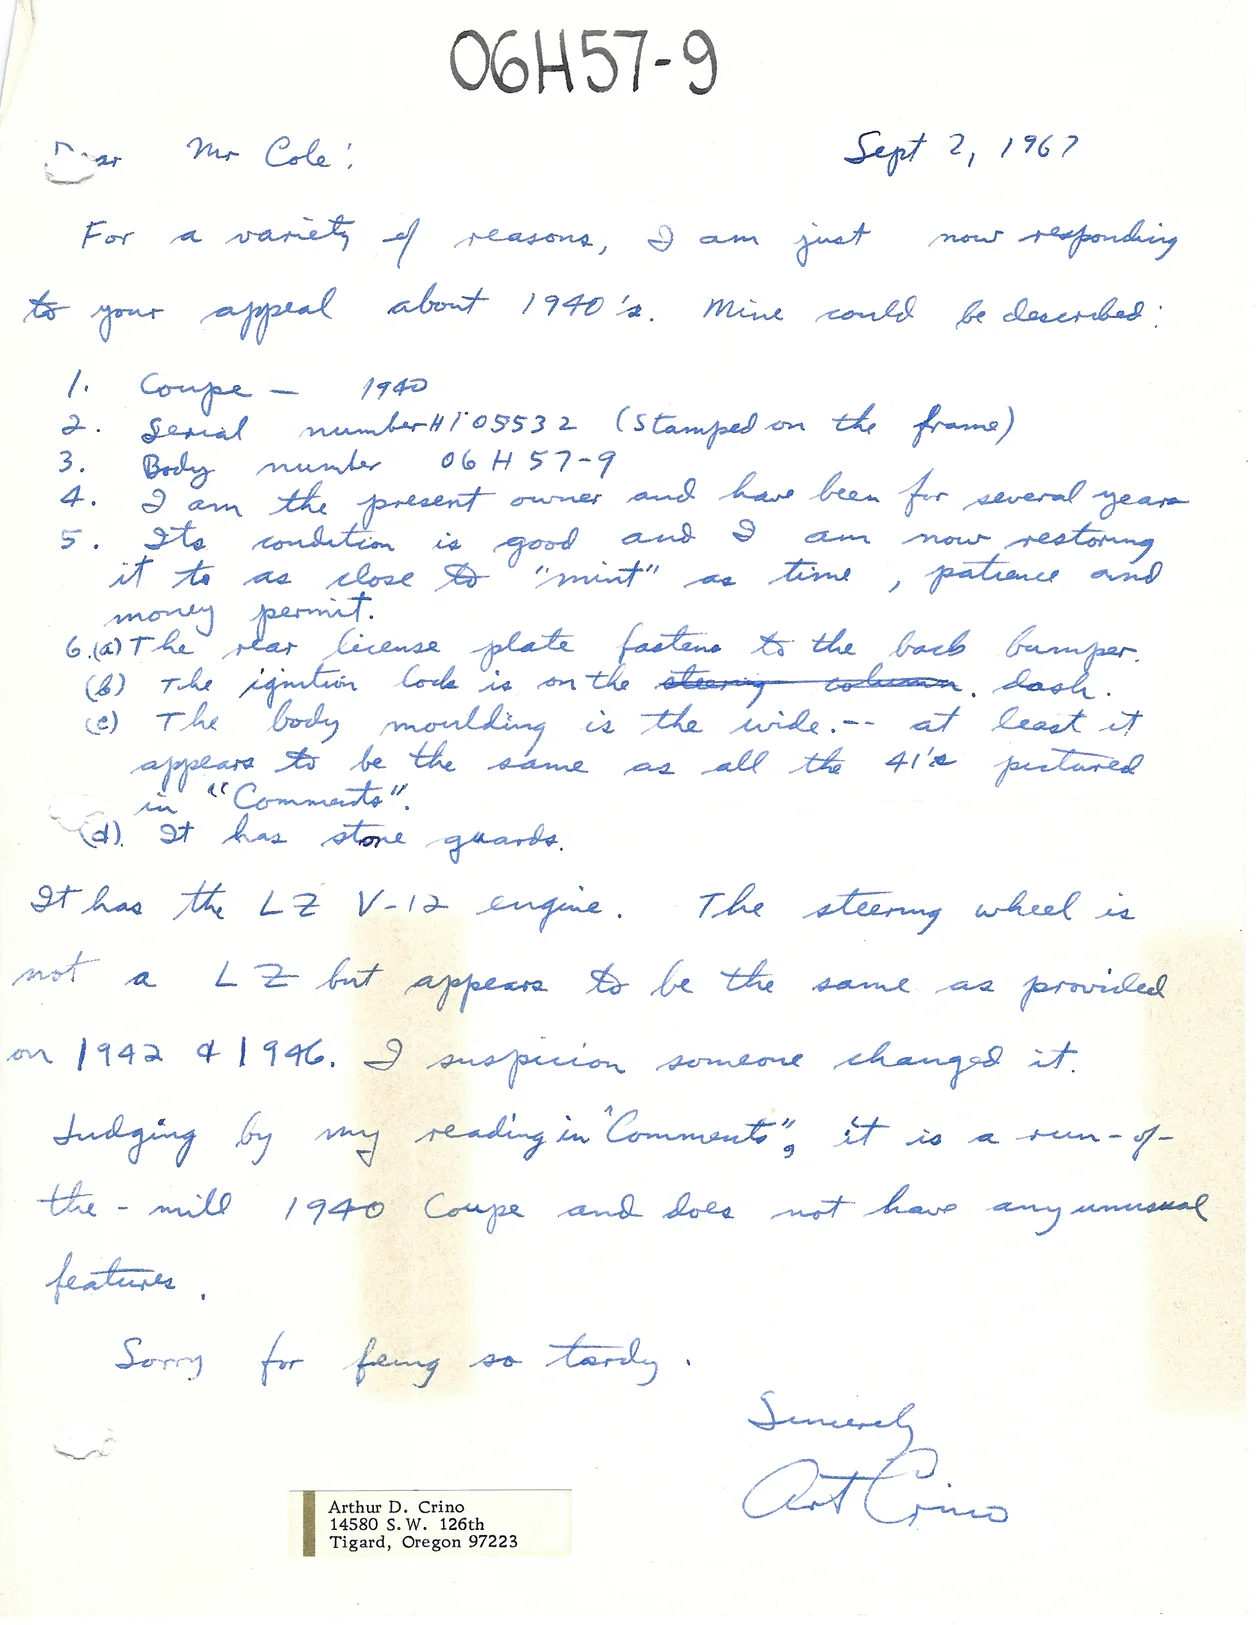 06H57-9
Dear Mr Cole: Sept 2, 1967
For a variety of reasons, I am just now responding
to your appeal about 1940's. Mine could be described:
1. Coupe — 1940
2. Serial number H105532 (Stamped on the frame)
3. Body number 06H57-9
4. I am the present owner and have been for several years
5. Its condition is good and I am now restoring
it to as close to "mint" as time, patience and
money permit.
6.(a) The rear license plate fastens to the back bumper.
(b) The ignition lock is on the steering column. dash.
(c) The body moulding is the wide.-- at least it
appears to be the same as all the 41's pictured
in "Comments".
(d). It has stone guards.
It has the LZ V-12 engine. The steering wheel is
not a LZ but appears to be the same as provided
on 1942 & 1946. I suspicion someone changed it.
Judging by my reading in "Comments", it is a run-of-
the-mill 1940 Coupe and does not have any unusual
features.
Sorry for being so tardy.
Sincerely
Art Crino
Arthur D. Crino
14580 S.W. 126th
Tigard, Oregon 97223